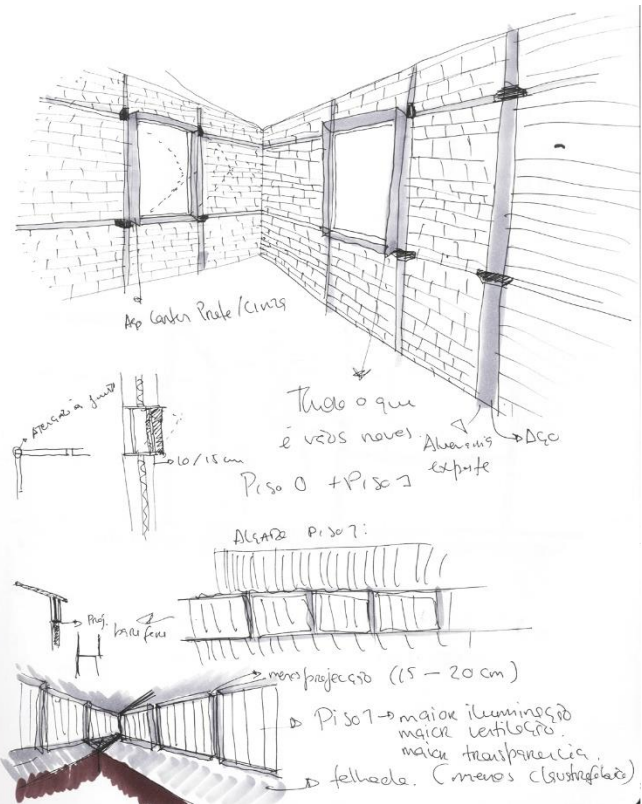 Aço Corten Preto/Cinza
Atenção à junta
10/15 cm
Tudo o que
é vãos novos.
Piso 0 + Piso 1
Alvenaria
exposta
Aço
ALÇADO PISO 1:
Proj.
para fora
menos projecção (15 – 20 cm)
Piso 1 → maior iluminação
maior ventilação.
maior transparencia.
telhado. (menos claustrofóbico)